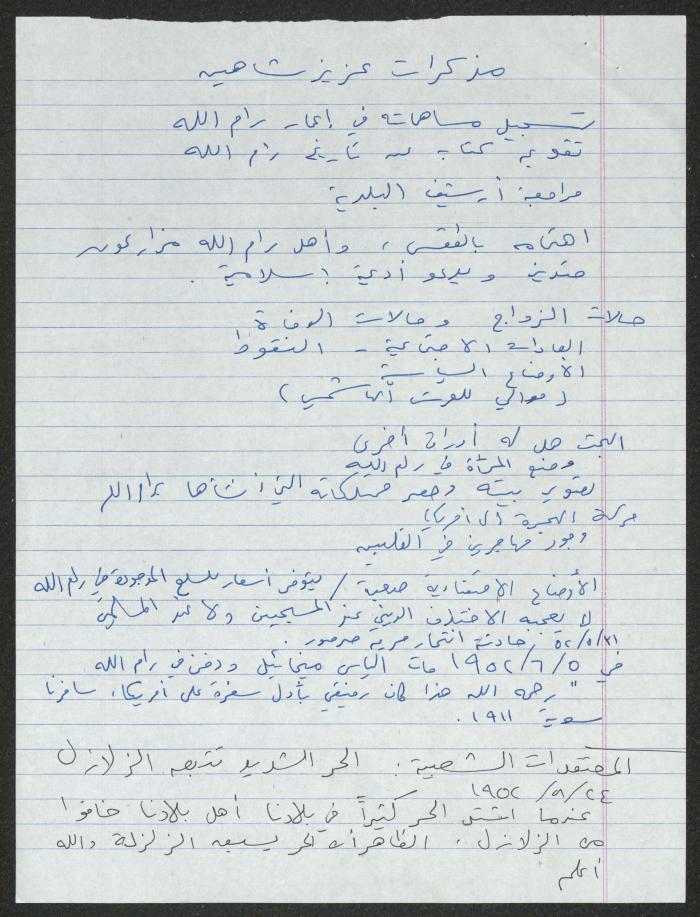 مذكرات عزيز شاهين
تسجيل مساهماته في إعمار رام الله
تقويم كتاب عن تاريخ رام الله
مراجعة أرشيف البلدية
اهتمامه بالطقس، وأهل رام الله مزارعون
متدين ويدعو أدعية إسلامية.
حالات الزواج وحالات الوفاة
العادات الاجتماعية - النقوط
الأوضاع السياسية
(موالي للعرش الهاشمي)
البحث هل له أوراق أخرى
وضع المرأة في رام الله
تصوير بيته وحصر ممتلكاته التي أنشأها برام الله
حركة الهجرة إلى أمريكا
وجود مهاجرين في الفلبين
الأوضاع الاقتصادية صعبة / يتوفر أسعار للسلع الموجودة في رام الله
لا يعجبه الاختلاف الديني عند المسيحيين ولا عند المسلمين
٥٢/٥/٣١ حادثة انتحار مرية صرصور.
في ١٩٥٢/٦/٥ مات الياس ميخائيل ودفن في رام الله
"رحمه الله هذا كان رفيقي بأول سفرة على أمريكا، سافرنا
سوية ١٩١١.
المعتقدات الشعبية: الحر الشديد تتبعه الزلازل
١٩٥٢/٨/٢٤
عندما اشتد الحر كثيراً في بلادنا أهل بلادنا خافوا
من الزلازل. الظاهر أن الحر يسبق الزلزلة والله
أعلم